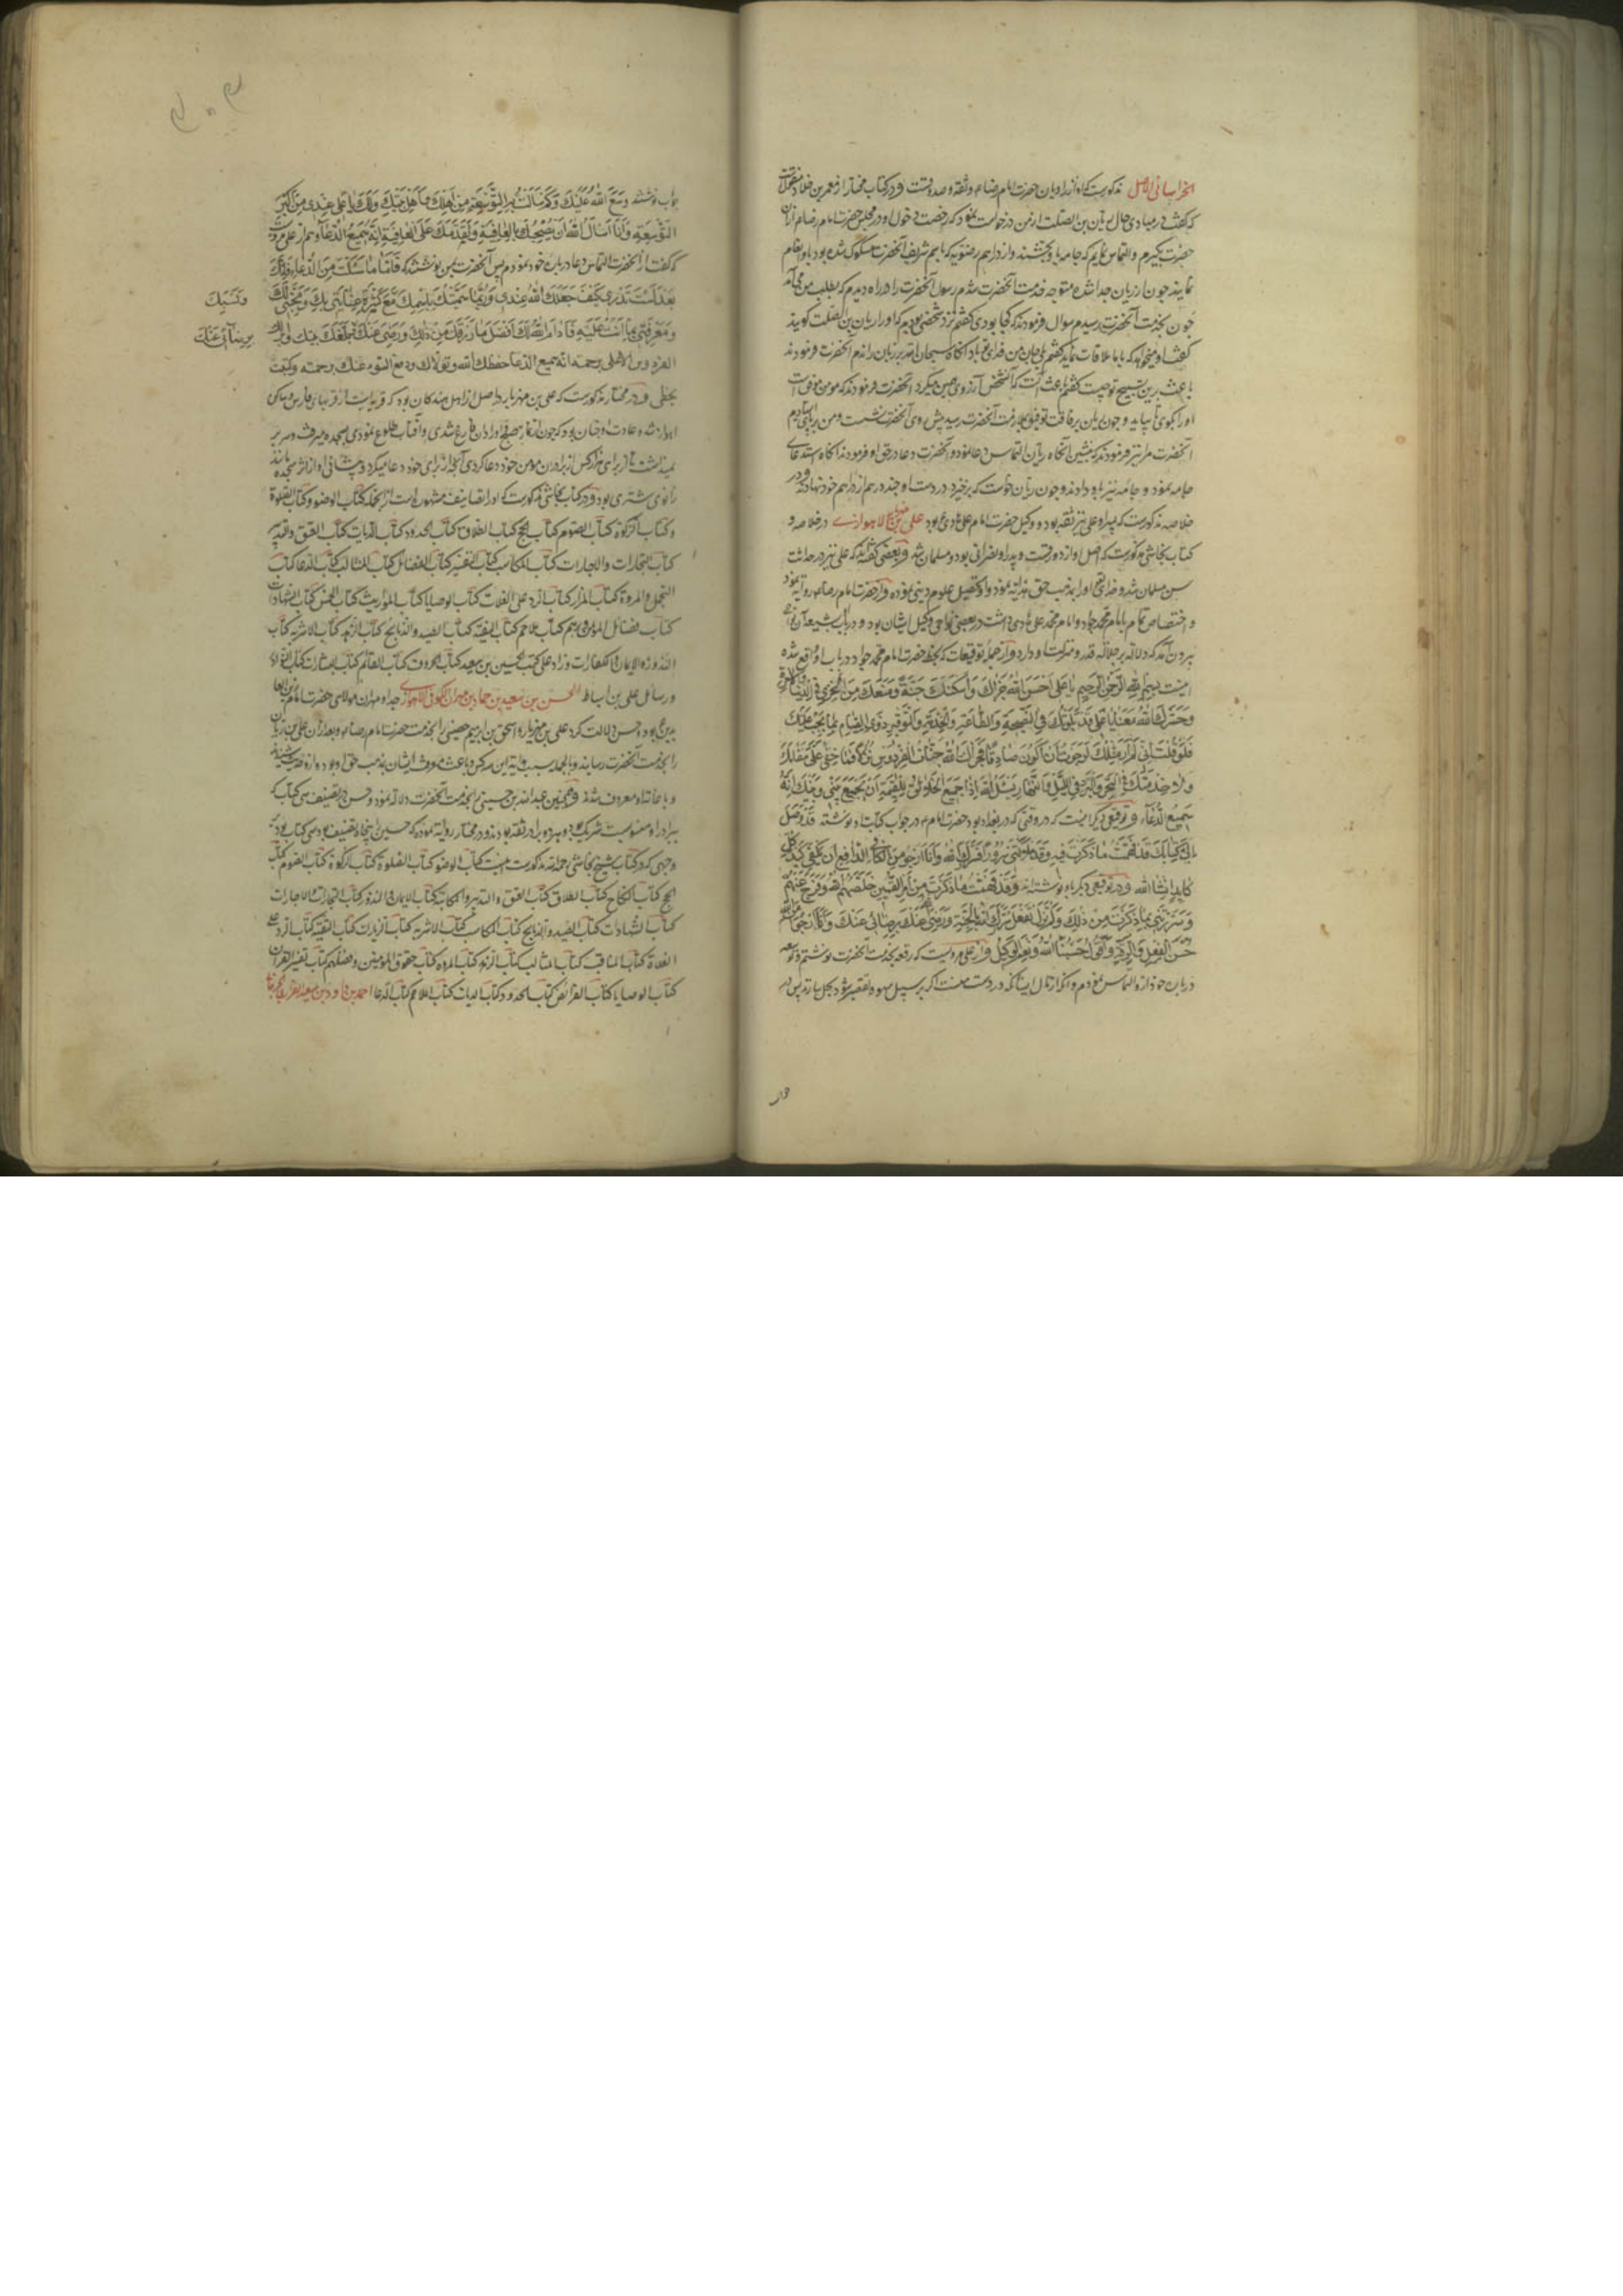 الخراسانی الاصل مذکورست که او از راویان حضرت امام رضا و ثقه و صدوقست و در کتاب مختار از معمر بن خلاد منقولست
که گفت در مبادی حال ریان بن الصلت از من درخواست نمود که رخصت دخول او در مجلس حضرت امام رضا از آن
حضرت بگیرم و التماس نمایم که جامه باو بخشند و از دراهم رضویه که باسم شریف آنحضرت مسکوک شده بود باو انعام
نمایند چون از ریان جدا شده متوجه خدمت آنحضرت شدم رسول آنحضرت را در راه دیدم که بطلب من می آمد
چون بخدمت آنحضرت رسیدم سوال فرمودند که کجا بودی گفتم نزد شخصی بودم که او را ریان بن الصلت گویند
گفت او میخواهد که با ما ملاقات نماید گفتم بلی جان من فدای تو باد آنگاه سبحان الله بر زبان راندم آنحضرت فرمودند
باعث برین تسبیح تو چیست گفتم باعث آنست که آنشخص آرزوی همین میکرد آنحضرت فرمودند که مومن موفق است
او را بگوی تا بیاید و چون ریان برفاقت توفیق بملازمت آنحضرت رسید پیش روی آنحضرت نشست و من برپا ایستادم
آنحضرت مرا نیز فرمودند که بنشین آنگاه ریان التماس دعا نمود و آنحضرت دعا در حق او فرمودند آنگاه استدعای
جامه نمود و جامه نیز باو دادند و چون ریان خواست که برخیزد در دست او چند درهم از دراهم خود نهادند و در
خلاصه مذکورست که پسر او علی نیز ثقه بود و وکیل حضرت امام علی هادی ع بود علی بن مهزیار الاهوازی در خلاصه و
کتاب نجاشی مذکورست که اصل او از دورقست و پدر او نصرانی بود و مسلمان شد و بعضی گفته اند که علی نیز در حداثت
سن مسلمان شد و خدای تعالی او را بمذهب حق هدایة نمود و او تحصیل علوم دینی نموده و از حضرت امام رضا روایة نمود
و اختصاص تمام بامام محمد جواد و امام محمد علی هادی داشت در بعضی نواحی وکیل ایشان بود و در باب شیعه آن نواحی
بیرون آمد که دلالة بر جلالة قدر و منزلت او دارد و از جملة توقیعات که بخط حضرت امام محمد جواد در باب او واقع شده
اینست بسم الله الرحمن الرحیم یا علی احسن الله جزاک و اسکنک جنته و منعک من الخزی فی الدنیا و الاخرة
و حشرک الله معنا یا علی قد بلوتک فی النصیحة و الطاعة و الخدمة و التوقیر و القیام بما یجب علیک
فلو قلت انی لم ار مثلک لرجوت ان اکون صادقا فجزاک الله جنات الفردوس نزلا فما خفی علی مقامک
و لا خدمتک فی الحر و البرد فی اللیل و النهار فاسئل الله اذا جمع الخلائق للقیمة ان یجمع بینی و بینک انه
سمیع الدعاء و توقیعی دیگر اینست که در وقتی که در بغداد بود حضرت امام در جواب کتاب او نوشته قد وصل
الی کتابک قد فهمت ما ذکرت فیه و ملأتنی سرورا فسرک الله و انا ارجو من الکافی الدافع ان یکفی کید کل
کاید انشا الله و در توقیعی دیگر باو نوشته اند و قد فهمت ما ذکرت من امر القمیین خلصهم الله و فرج عنهم
و سررتنی بما ذکرت من ذلک و لم تزل تفعل سرک الله بالجنة و رضی عنک برضائی عنک و انا ارجو من الله
حسن العفو و الرأفة و اقول حسبنا الله و نعم الوکیل و از علی مرویست که رقعه بخدمت آنحضرت نوشتم و توسعه
در باب خود ازو التماس نمودم
جواب نوشتند وسع الله علیک و لمن سالت به التوسعة من اهلک و لاهل بیتک و لک یا علی عندی من اکبر
التوسعة و انا اسال الله ان یصحبک بالعافیة و یقدمک علی العافیة انه سمیع الدعاء و هم از علی مرویست
که گفت از آنحضرت التماس دعا در باره خود نمودم پس آنحضرت بمن نوشتند که فاما ما سئلت من الدعاء فانک
بعد لست تدری کیف جعلک الله عندی و ربما سمیتک باسمک و نسبک مع کثرة عنایتی بک و محبتی لک
و معرفتی بما انت علیه فادام الله لک افضل ما رزقک من ذلک و رضی عنک برضائی عنک و بلغک نیتک و انزلک
الفردوس الاعلی برحمته انه سمیع الدعا حفظک الله و تولاک و دفع السوء عنک برحمته و کتبت
بخطی و در مختار مذکورست که علی بن مهزیار در اصل از اهل هندکان بود که قریه ایست از قریهای فارس و ساکن
اهواز شده و عادت او چنان بود که چون از نماز صبح و اوراد آن فارغ شدی و آفتاب طلوع نمودی بسجده میرفت و سر بر
نمیداشت تا از برای هزار کس از برادران مومن خود دعا کردی آنچه از برای خود دعا میکرد و پیشانی او از اثر سجده مانند
زانوی شتری بود و در کتاب نجاشی مذکورست که او را تصانیف مشهوره است از انجمله کتاب الوضو و کتاب الصلوة
و کتاب الزکوة کتاب الصوم کتاب الحج کتاب الطلاق کتاب الحدود کتاب الدیات کتاب العتق و التدبیر
کتاب التجارات و الاجارات کتاب المکاسب کتاب التفسیر کتاب الفضائل کتاب المثالب کتاب الدعا کتاب
التجمل و المروة کتاب المزار کتاب الرد علی الغلات کتاب الوصایا کتاب المواریث کتاب الخمس کتاب الشهادات
کتاب فضائل المومنین و برهم کتاب الملاحم کتاب التقیة کتاب الصید و الذبائح کتاب الزهد کتاب الاشربه کتاب
النذور و الایمان و الکفارات و زاد علی کتب الحسین بن سعید کتاب الحروف کتاب القائم کتاب البشارات کتاب الانبیا
و رسائل علی بن اسباط الحسن بن سعید بن حماد بن مهران الکوفی الاهوازی جد او مهران مولای حضرت امام زین العا
بدین ع بود و حسن دلالت کرد علی بن مهزیار و اسحق بن ابرهیم حضینی را بخدمت حضرت امام رضا و بعد از آن علی بن ریان
را بخدمت آنحضرت رسانید و بالجمله سبب هدایة این سه کس و باعث معرفت ایشان بمذهب حق او بود و ازو حدیث شنیدند
و باخانه او معروف شدند و همچنین عبدالله بن حسینی بخدمت آنحضرت دلالة نمود و حسن در تصنیف سی کتاب که
ببرادر او منسوبست شریک بود و هر دو برادر ثقه بودند و در مختار روایة نموده که حسین پنجاه تصنیف بود سی کتاب بود
وجهی که در کتاب شیخ نجاشی رحمه الله مذکورست اینست کتاب الوضو کتاب الصلوة کتاب الزکوة کتاب الصوم کتاب
الحج کتاب النکاح کتاب الطلاق کتاب العتق و التدبیر و المکاتبة کتاب الایمان و النذور کتاب التجارات و الاجارات
کتاب الشهادات کتاب الصید و الذبایح کتاب المکاسب کتاب الاشربه کتاب الزیارات کتاب التقیة کتاب الرد علی
الغلاة کتاب المناقب کتاب المثالب کتاب الزهد کتاب المروة کتاب حقوق المومنین و فضلهم کتاب تفسیر القرآن
کتاب الوصایا کتاب الفرائض کتاب الحدود کتاب الدیات کتاب الملاحم کتاب الدعا احمد بن داود بن سعید الفزاری
و نسبک
برضائی عنک